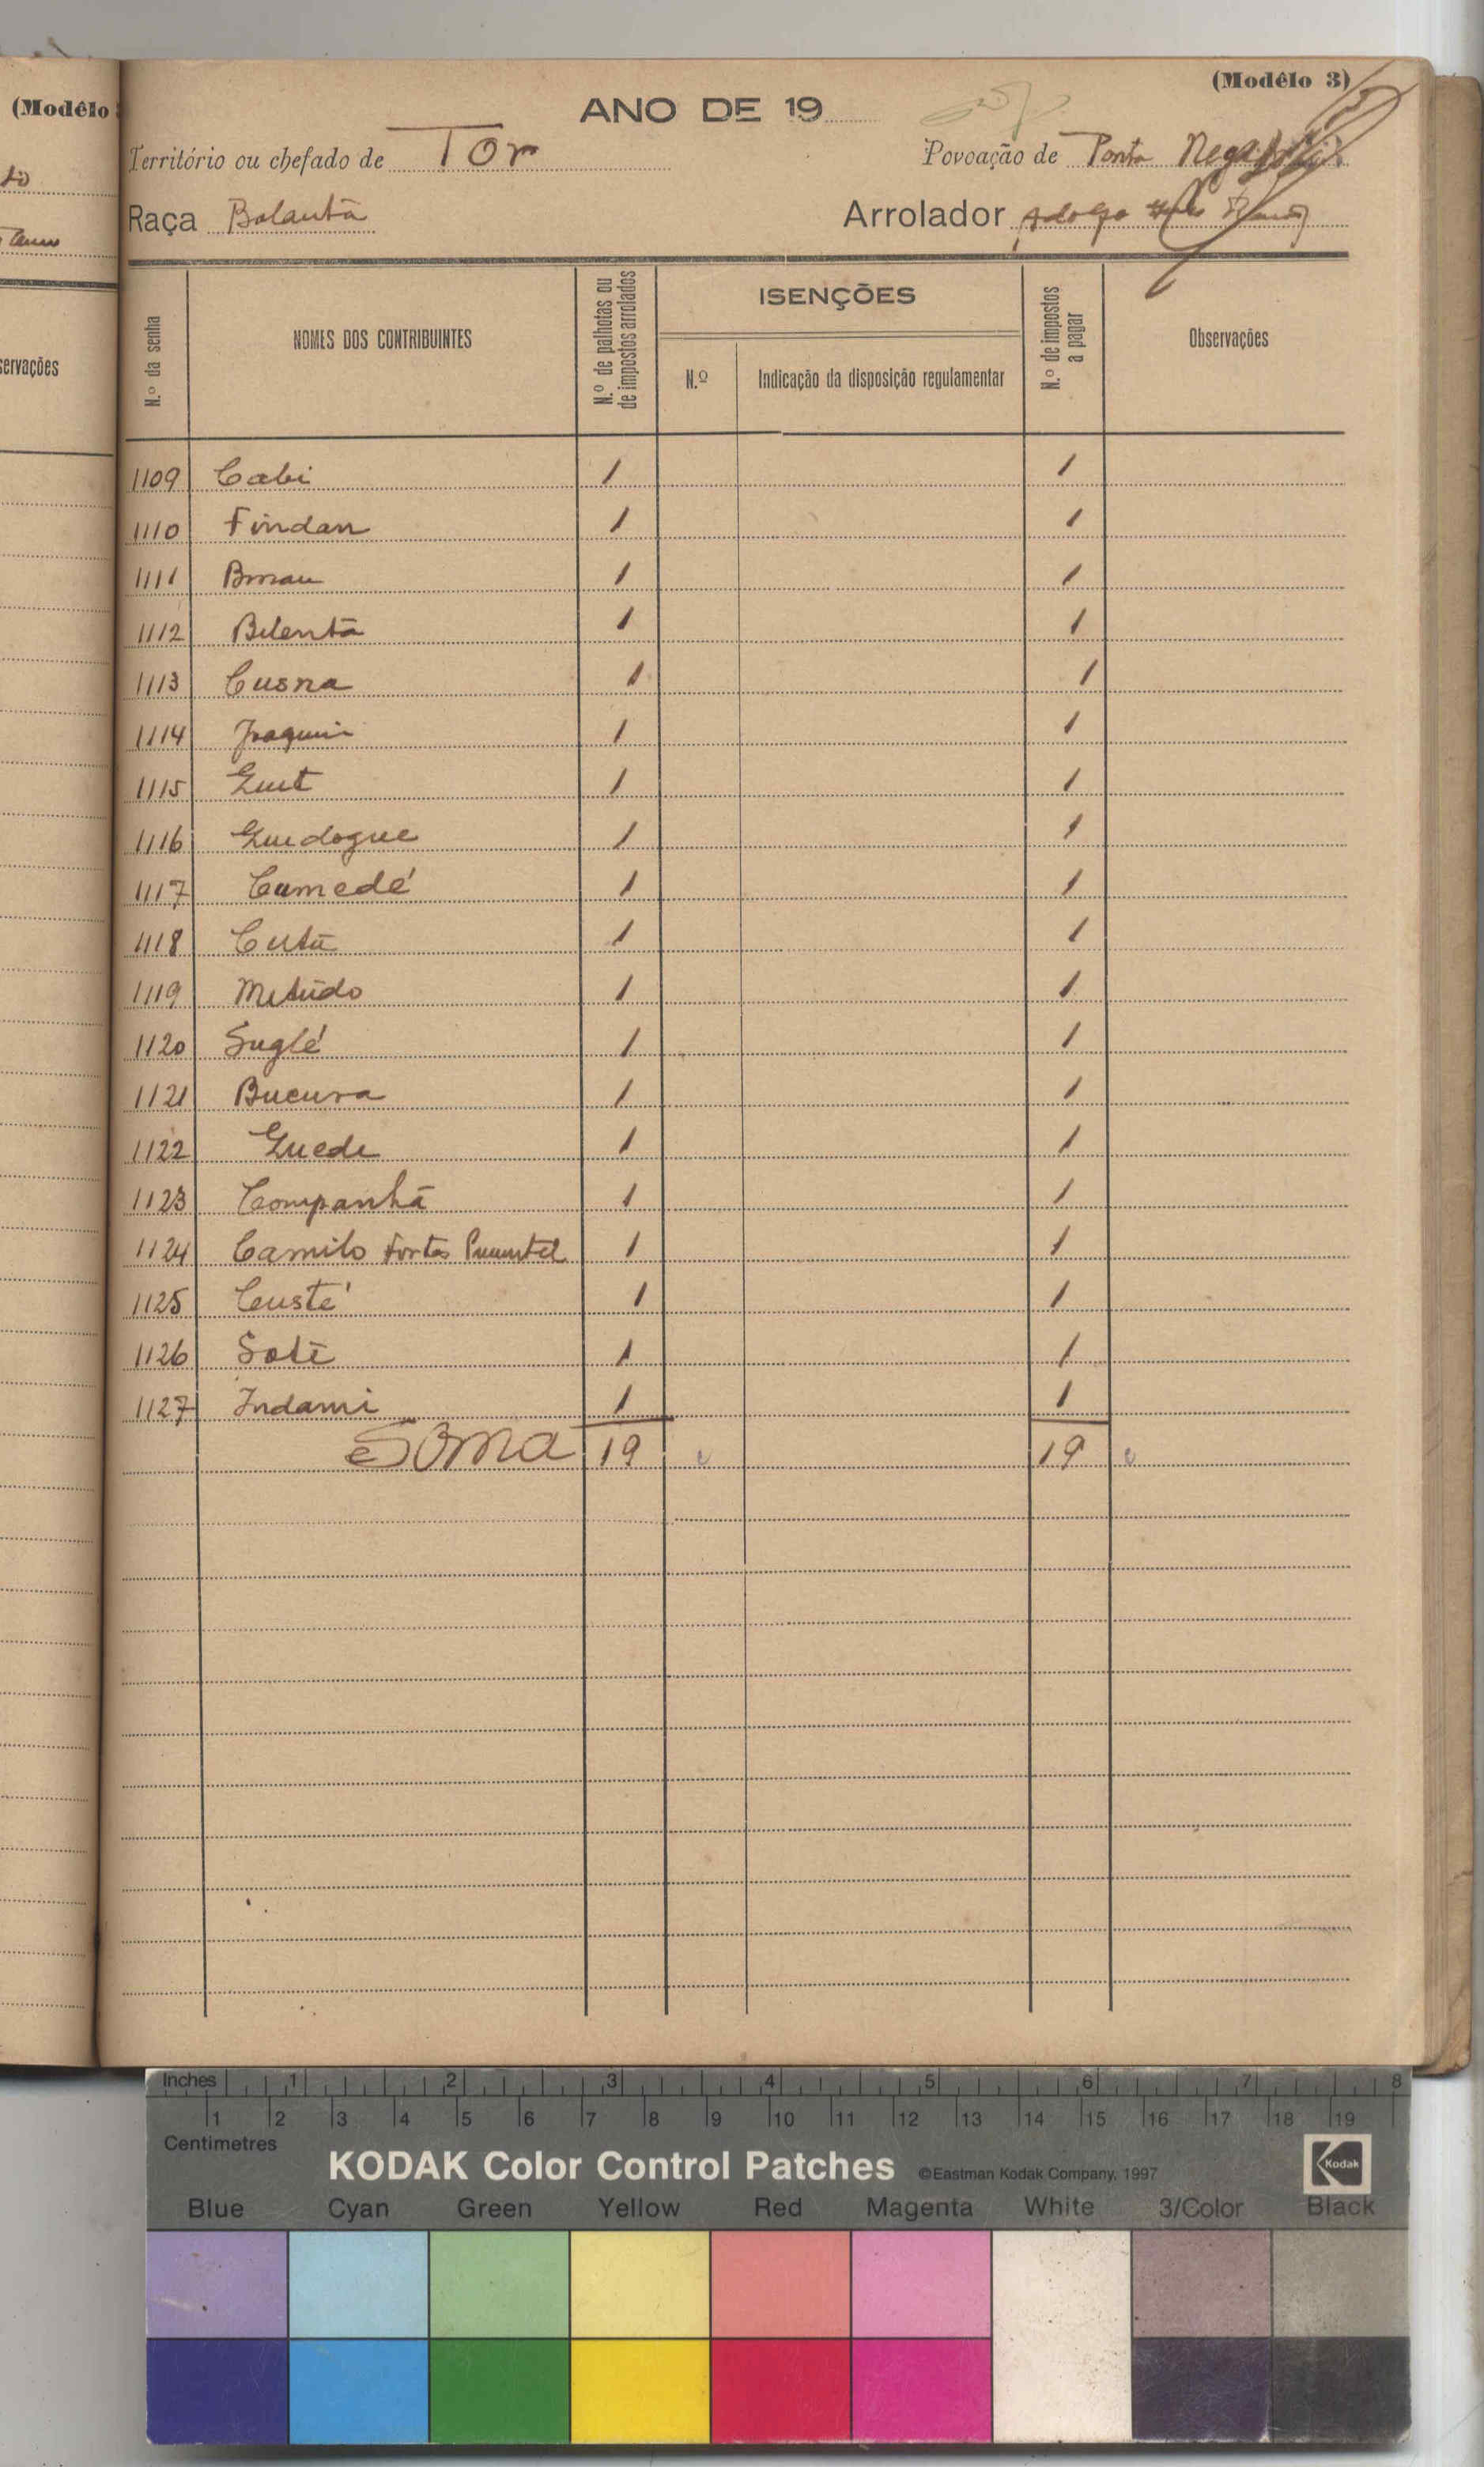 (Modêlo
servações
(Modêlo 3)
ANO DE 19
Território ou chefado de Tor
Povoação de Ponta
Raça Balanta
Arrolador Adolfo
N.º da senha
NOMES DOS CONTRIBUINTES
N.º de palhotas ou de impostos arrolados
ISENÇÕES
N.º
Indicação da disposição regulamentar
N.º de impostos a pagar
Observações
1109 Cabi 1 1
1110 Findan 1 1
1111 1 1
1112 Bilentã 1 1
1113 Cusna 1 1
1114 Joaquim 1 1
1115 1 1
1116 Guidogue 1 1
1117 Cumedé 1 1
1118 Cutū 1 1
1119 Metudo 1 1
1120 Suglé 1 1
1121 Bucura 1 1
1122 Guede 1 1
1123 Companhã 1 1
1124 Camilo Fortes Pimentel 1 1
1125 Custé 1 1
1126 Soti 1 1
1127 Indami 1 1
Soma 19 19
Inches 1 2 3 4 5 6 7 8
1 2 3 4 5 6 7 8 9 10 11 12 13 14 15 16 17 18 19
Centimetres
KODAK Color Control Patches ©Eastman Kodak Company, 1997 Kodak
Blue Cyan Green Yellow Red Magenta White 3/Color Black